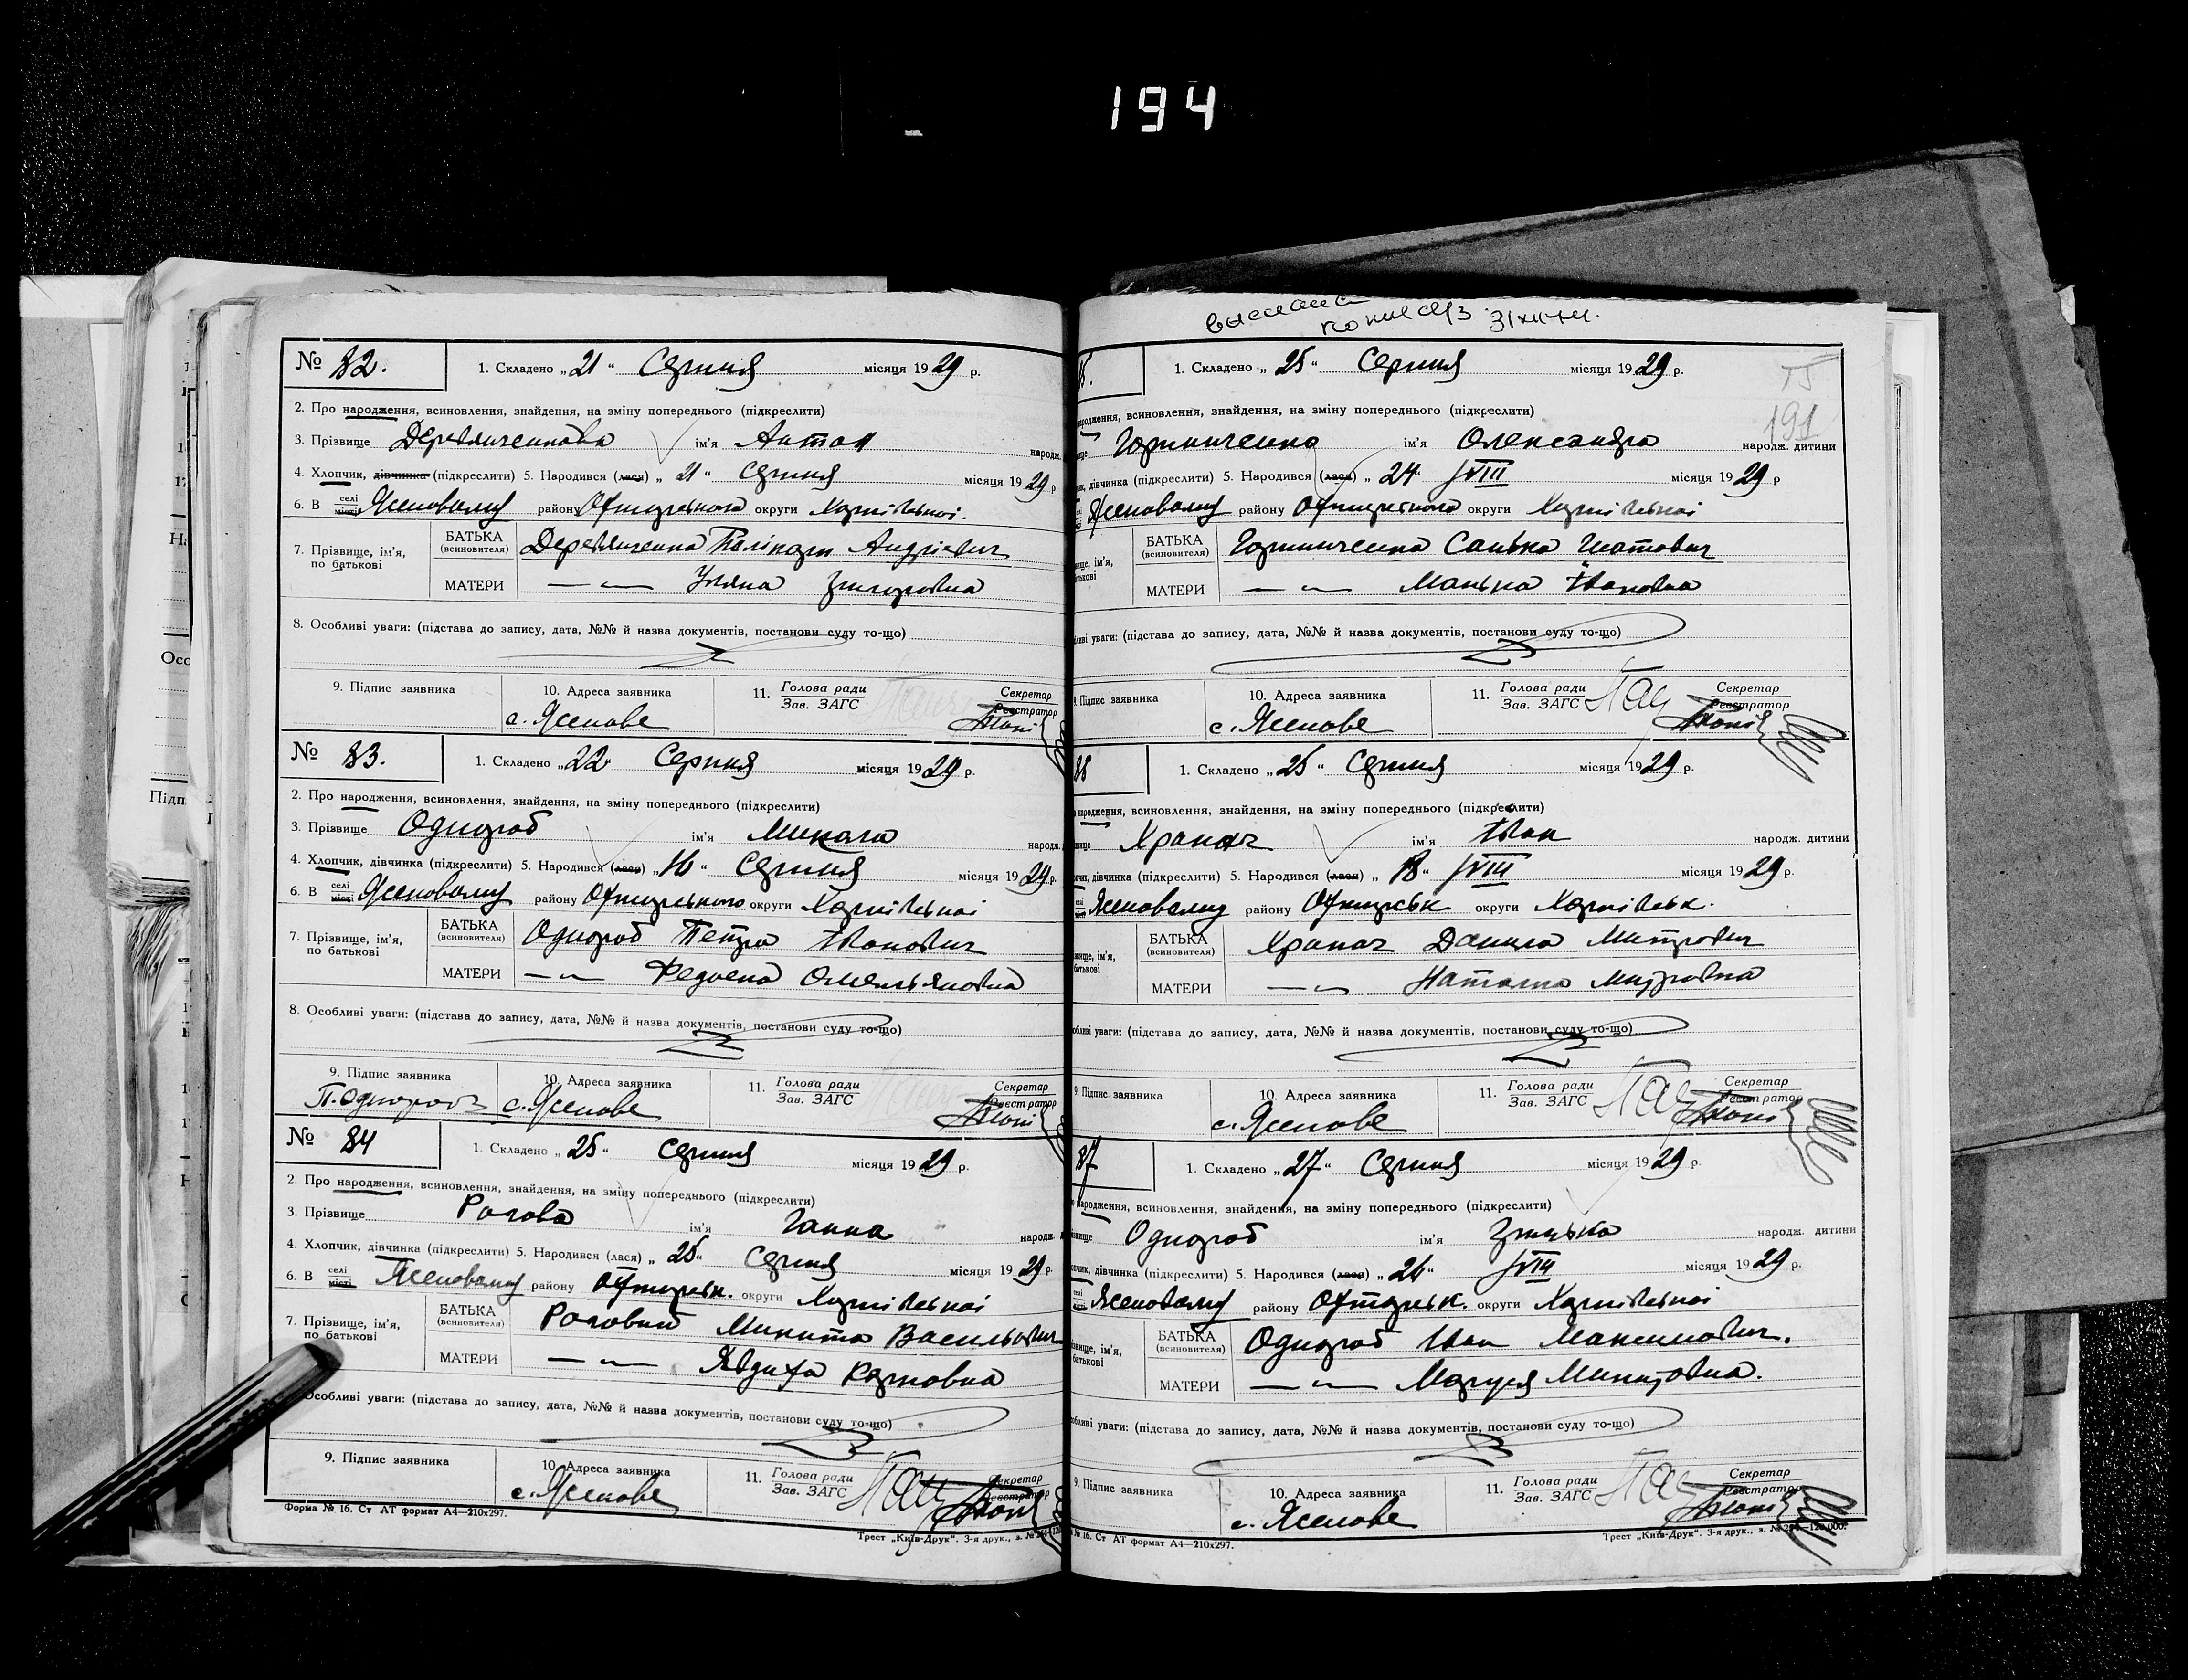 194
№ 82.
1. Складено „21“ Серпня місяця 1929 р.
2. Про народження, всиновлення, знайдення, на зміну попереднього (підкреслити)
3. Прізвище ім'я Антон народж.
4. Хлопчик, дівчинка (підкреслити) 5. Народився (лася) „21“ Серпня місяця 1929 р
6. В селі місті Ясеновому району Охтирського округи Харківської.
7. Прізвище, ім'я, по батькові
БАТЬКА (всиновителя) Деревянченко Полікарп Андрієвич
МАТЕРИ —〃— Уляна Григоровна
8. Особливі уваги: (підстава до запису, дата, №№ й назва документів, постанови суду то-що)
9. Підпис заявника
10. Адреса заявника
с. Ясенове
11. Голова ради Зав. ЗАГС
Секретар Реєстратор
№ 83.
1. Складено „22“ Серпня місяця 1929 р.
2. Про народження, всиновлення, знайдення, на зміну попереднього (підкреслити)
3. Прізвище Одnороб ім'я Микола народж.
4. Хлопчик, дівчинка (підкреслити) 5. Народився (лася) „16“ Серпня місяця 1929 р.
6. В селі місті Ясеновому району Охтирського округи Харківської
7. Прізвище, ім'я, по батькові
БАТЬКА (всиновителя) Однороб Петро Іванович
МАТЕРИ —〃— Федосия Омельяновна
8. Особливі уваги: (підстава до запису, дата, №№ й назва документів, постанови суду то-що)
9. Підпис заявника
П. Однороб
10. Адреса заявника
с. Ясенове
11. Голова ради Зав. ЗАГС
Секретар Реєстратор
№ 84
1. Складено „25“ Серпня місяця 1929 р.
2. Про народження, всиновлення, знайдення, на зміну попереднього (підкреслити)
3. Прізвище Рогова ім'я Ганна народж.
4. Хлопчик, дівчинка (підкреслити) 5. Народився (лася) „25“ Серпня місяця 1929 р.
6. В селі місті Ясеновому району Охтирськ. округи Харківської
7. Прізвище, ім'я, по батькові
БАТЬКА (всиновителя) Роговий Микита Васильович
МАТЕРИ —〃— Явдиха Карповна
Особливі уваги: (підстава до запису, дата, №№ й назва документів, постанови суду то-що)
9. Підпис заявника
10. Адреса заявника
с. Ясенове
11. Голова ради Зав. ЗАГС
Секретар Реєстратор
Форма № 16. Ст АТ формат А4—210х297.
Трест „Київ-Друк“. 3-я друк., з. №
191
1. Складено „25“ Серпня місяця 1929 р.
народження, всиновлення, знайдення, на зміну попереднього (підкреслити)
ім'я Олександра народж. дитини
дівчинка (підкреслити) 5. Народився (лася) „24“ VIII місяця 1929 р
Ясеновому району Охтирського округи Харківської
БАТЬКА (всиновителя) Санько
МАТЕРИ —〃— Манька Івановна
уваги: (підстава до запису, дата, №№ й назва документів, постанови суду то-що)
9. Підпис заявника
10. Адреса заявника
с. Ясенове
11. Голова ради Зав. ЗАГС
Секретар Реєстратор
86
1. Складено „25“ Серпня місяця 1929 р.
народження, всиновлення, знайдення, на зміну попереднього (підкреслити)
Храпач ім'я Іван народж. дитини
дівчинка (підкреслити) 5. Народився (лася) „18“ VIII місяця 1929 р.
Ясеновому району Охтирськ округи Харківськ.
БАТЬКА (всиновителя) Храпач Данило Митрович
МАТЕРИ —〃— Наталія Митровна
уваги: (підстава до запису, дата, №№ й назва документів, постанови суду то-що)
9. Підпис заявника
10. Адреса заявника
с. Ясенове
11. Голова ради Зав. ЗАГС
Секретар Реєстратор
87
1. Складено „27“ Серпня місяця 1929 р.
народження, всиновлення, знайдення, на зміну попереднього (підкреслити)
Однороб ім'я Грицько народж. дитини
дівчинка (підкреслити) 5. Народився (лася) „26“ VIII місяця 1929 р.
Ясеновому району Охтирськ. округи Харківської
БАТЬКА (всиновителя) Однороб Іван Максимович.
МАТЕРИ —〃— Маруся Микитовна.
уваги: (підстава до запису, дата, №№ й назва документів, постанови суду то-що)
9. Підпис заявника
10. Адреса заявника
с. Ясенове
11. Голова ради Зав. ЗАГС
Секретар Реєстратор
№ 16. Ст АТ формат А4—210х297.
Трест „Київ-Друк“. 3-я друк., з. №